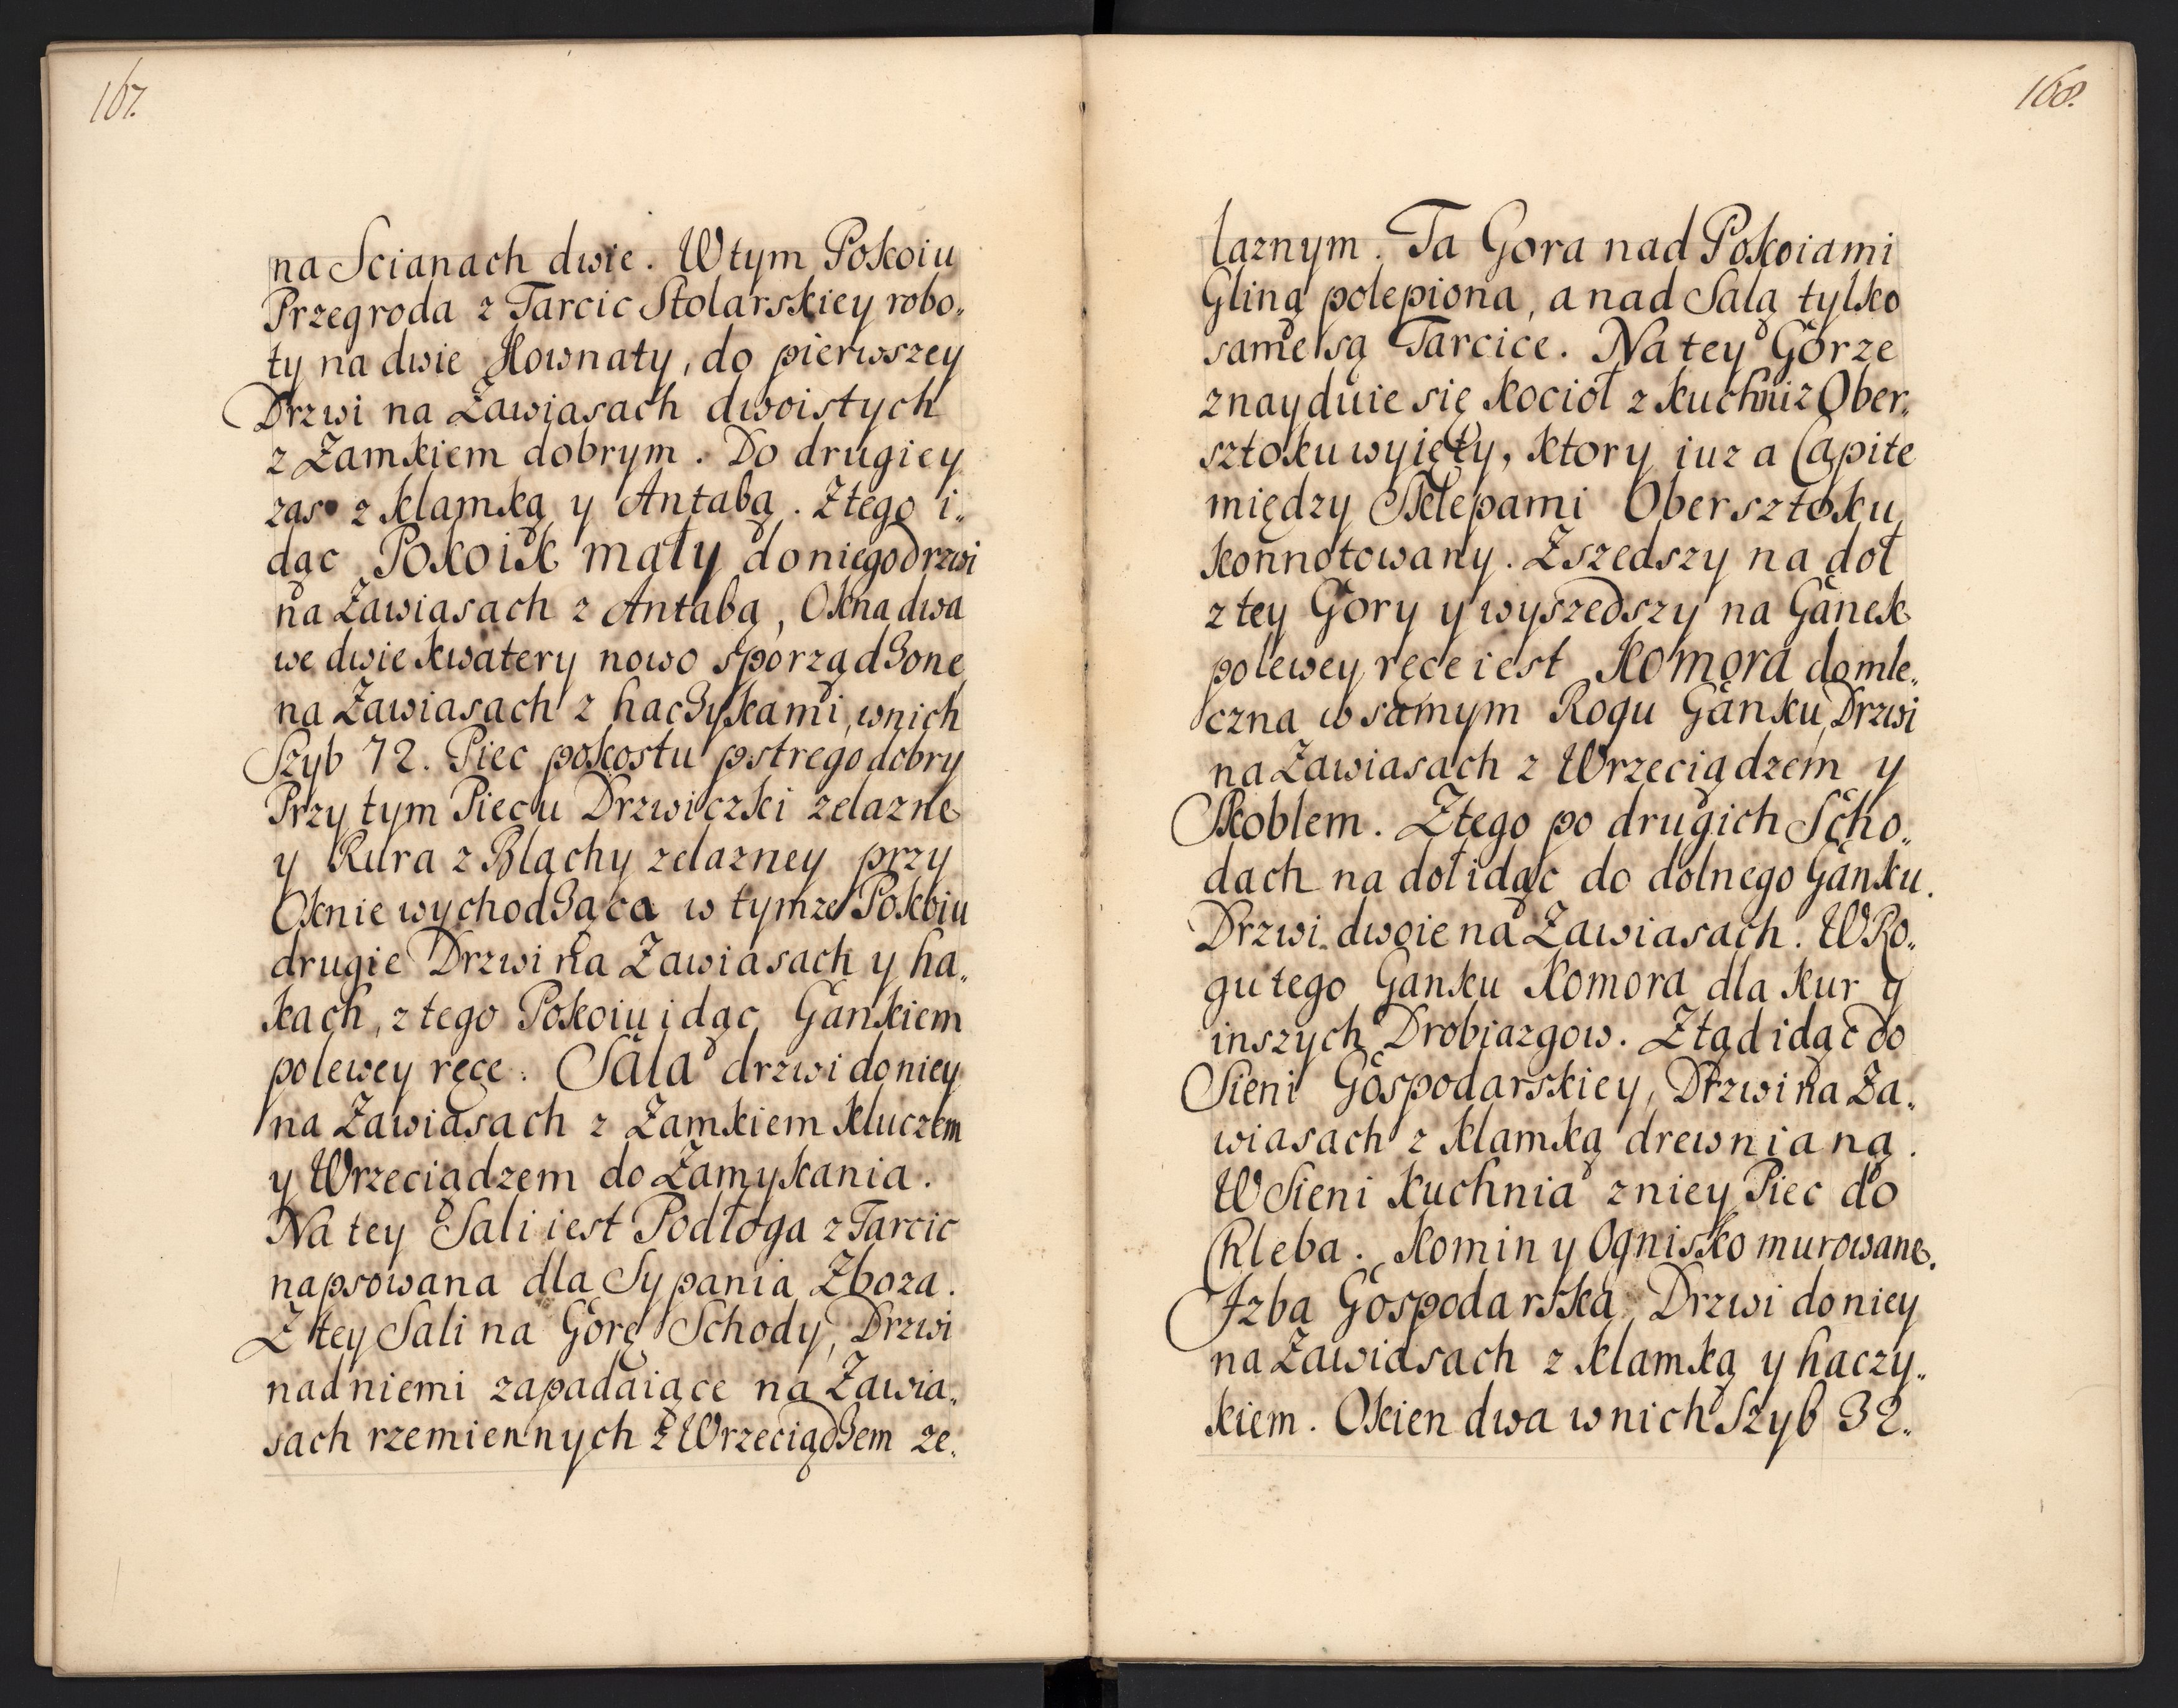 167.
na Scianach dwie. W tym Pokoiu
Przegroda z Tarcic Stolarskiey robo„
ty na dwie Kownaty, do pierwszey
Drzwi na Zawiasach dwoistych
z Zamkiem dobrym. Do drugiey
zas z Klamką y Antabą. Z tego i„
dąc Pokoik mały do niego Drzwi
na Zawiasach z Antabą, Okna dwa
we dwie kwatery nowo sporządzone
na Zawiasach z haczykami, w nich
Szyb 72. Piec pokostu pstrego dobry
Przy tym Piecu Drzwiczki zelazne
y Rura z Blachy zelazney przy
Oknie wychodząca w tymze Pokoiu
drugie Drzwi na Zawiasach y ha„
kach, z tego Pokoiu idąc Gankiem
po lewey ręce. Sala drzwi do niey
na Zawiasach z Zamkiem Kluczem
y Wrzeciądzem do Zamykania.
Na tey Sali iest Podłoga z Tarcic
napsowana dla Sypania Zboza.
Z tey Sali na Gorę Schody, Drzwi
nad niemi zapadaiące na Zawia„
sach rzemiennych z Wrzeciądzem ze„
168.
laznym. Ta Gora nad Pokoiami
Gliną polepiona, a nad Salą tylko
same są Tarcice. Na tey Gorze
znayduie się Kocioł z Kuchni z Ober„
sztoku wyięty, ktory iuz a Capite
między Sklepami Obersztoku
konnotowany. Zszedszy na doł
z tey Gory y wyszedszy na Ganek
po lewey ręce iest Komora do mle„
czna w samym Rogu Ganku, Drzwi
na Zawiasach z Wrzeciądzem y
Skoblem. Z tego po drugich Scho„
dach na doł idąc do dolnego Ganku.
Drzwi dwoie na Zawiasach. W Ro„
gu tego Ganku Komora dla Kur y
inszych Drobiazgow. Z tąd idąc do
Sieni Gospodarskiey, Drzwi na Za„
wiasach z Klamką drewnianą.
W Sieni Kuchnia z niey Piec do
Chleba. Komin y Ognisko murowane.
Izba Gospodarska Drzwi do niey
na Zawiasach z Klamką y haczy„
kiem. Okien dwa w nich Szyb 32.